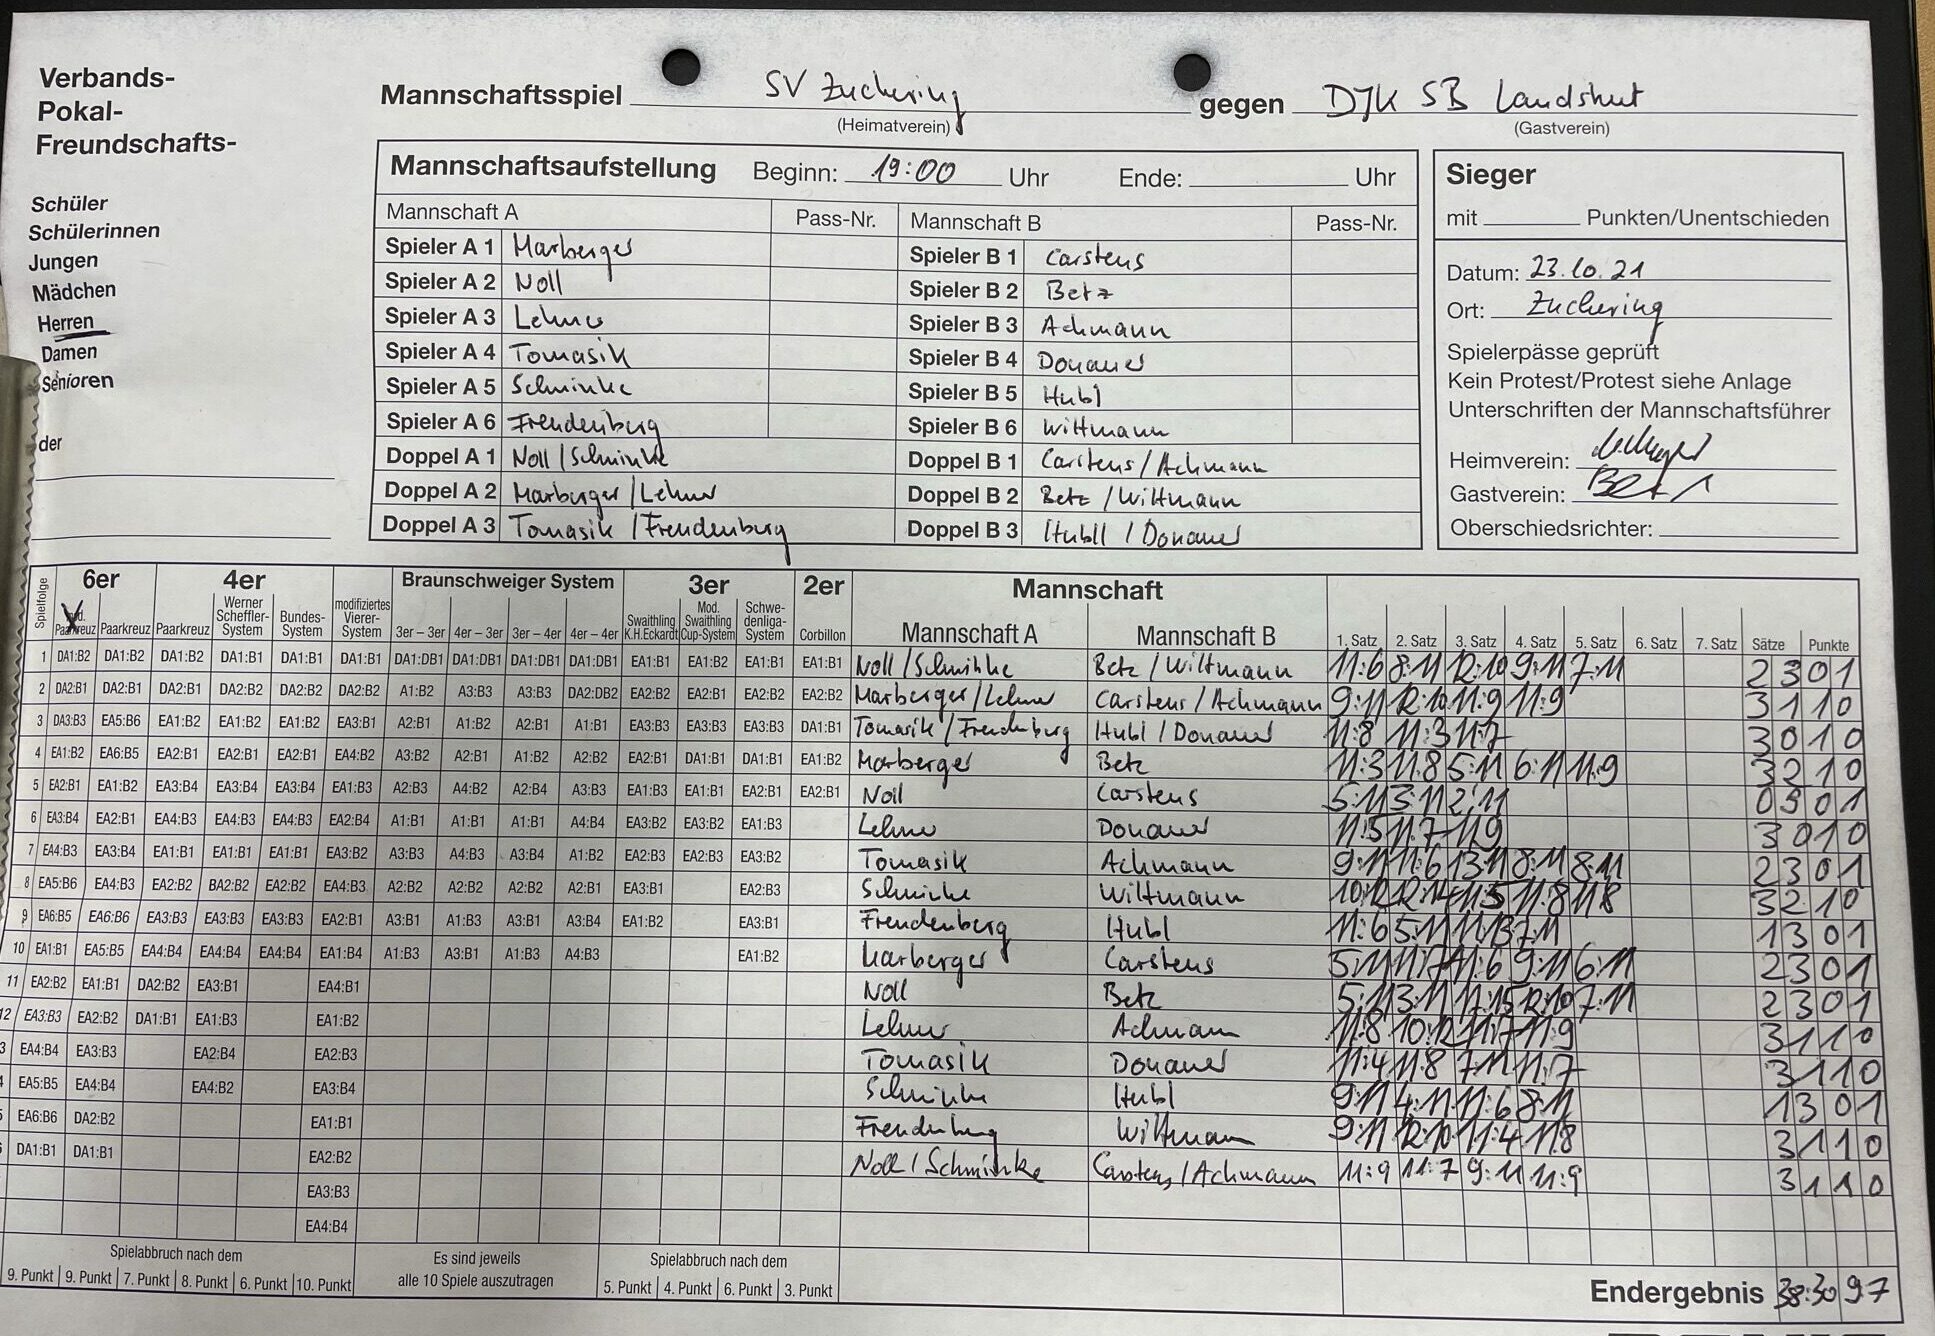 Verbands-
Pokal-
Freundschafts-
Schüler
Schülerinnen
Jungen
Mädchen
Herren
Damen
Senioren
der
Mannschaftsspiel SV Zuchering gegen DJK SB Landshut
(Heimatverein) (Gastverein)
Mannschaftsaufstellung Beginn: 19:00 Uhr Ende: Uhr
Mannschaft A Pass-Nr. Mannschaft B Pass-Nr.
Spieler A 1 Marberger Spieler B 1 Carstens
Spieler A 2 Noll Spieler B 2 Betz
Spieler A 3 Lehner Spieler B 3 Achmann
Spieler A 4 Tomasik Spieler B 4 Donauer
Spieler A 5 Schminke Spieler B 5 Hubl
Spieler A 6 Freudenberg Spieler B 6 Wittmann
Doppel A 1 Noll / Schminke Doppel B 1 Carstens / Achmann
Doppel A 2 Marberger / Lehner Doppel B 2 Betz / Wittmann
Doppel A 3 Tomasik / Freudenburg Doppel B 3 Hubll / Donauer
Sieger
mit Punkten/Unentschieden
Datum: 23.10.21
Ort: Zuchering
Spielerpässe geprüft
Kein Protest/Protest siehe Anlage
Unterschriften der Mannschaftsführer
Heimverein:
Gastverein: Betz
Oberschiedsrichter:
Spielfolge 6er 4er Braunschweiger System 3er 2er Mannschaft
mod. Paarkreuz Paarkreuz Paarkreuz Werner Scheffler-System Bundes-System modifiziertes Vierer-System 3er – 3er 4er – 3er 3er – 4er 4er – 4er Swaithling K.H.Eckardt Mod. Swaithling Cup-System Schwe-denliga-System Corbillon Mannschaft A Mannschaft B 1. Satz 2. Satz 3. Satz 4. Satz 5. Satz 6. Satz 7. Satz Sätze Punkte
1 DA1:B2 DA1:B2 DA1:B2 DA1:B1 DA1:B1 DA1:B1 DA1:DB1 DA1:DB1 DA1:DB1 DA1:DB1 EA1:B1 EA1:B2 EA1:B1 EA1:B1 Noll / Schminke Betz / Wittmann 11:6 8:11 12:10 9:11 7:11 2 3 0 1
2 DA2:B1 DA2:B1 DA2:B1 DA2:B2 DA2:B2 DA2:B2 A1:B2 A3:B3 A3:B3 DA2:DB2 EA2:B2 EA2:B1 EA2:B2 EA2:B2 Marberger / Lehner Carstens / Achmann 9:11 12:10 11:9 11:9 3 1 1 0
3 DA3:B3 EA5:B6 EA1:B2 EA1:B2 EA1:B2 EA3:B1 A2:B1 A1:B2 A2:B1 A1:B1 EA3:B3 EA3:B3 EA3:B3 DA1:B1 Tomasik / Freudenburg Hubl / Donauer 11:8 11:3 11:7 3 0 1 0
4 EA1:B2 EA6:B5 EA2:B1 EA2:B1 EA2:B1 EA4:B2 A3:B2 A2:B1 A1:B2 A2:B2 EA2:B1 DA1:B1 DA1:B1 EA1:B2 Marberger Betz 11:3 11:8 5:11 6:11 11:9 3 2 1 0
5 EA2:B1 EA1:B2 EA3:B4 EA3:B4 EA3:B4 EA1:B3 A2:B3 A4:B2 A2:B4 A3:B3 EA1:B3 EA1:B1 EA2:B1 EA2:B1 Noll Carstens 5:11 3:11 2:11 0 3 0 1
6 EA3:B4 EA2:B1 EA4:B3 EA4:B3 EA4:B3 EA2:B4 A1:B1 A1:B1 A1:B1 A4:B4 EA3:B2 EA3:B2 EA1:B3 Lehner Donauer 11:5 11:7 11:9 3 0 1 0
7 EA4:B3 EA3:B4 EA1:B1 EA1:B1 EA1:B1 EA3:B2 A3:B3 A4:B3 A3:B4 A1:B2 EA2:B3 EA2:B3 EA3:B2 Tomasik Achmann 9:11 11:6 13:11 8:11 8:11 2 3 0 1
8 EA5:B6 EA4:B3 EA2:B2 BA2:B2 EA2:B2 EA4:B3 A2:B2 A2:B2 A2:B2 A2:B1 EA3:B1 EA2:B3 Schminke Wittmann 10:12 12:14 11:5 11:8 11:8 3 2 1 0
9 EA6:B5 EA6:B6 EA3:B3 EA3:B3 EA3:B3 EA2:B1 A3:B1 A1:B3 A3:B1 A3:B4 EA1:B2 EA3:B1 Freudenberg Hubl 11:6 5:11 11:13 7:11 1 3 0 1
10 EA1:B1 EA5:B5 EA4:B4 EA4:B4 EA4:B4 EA1:B4 A1:B3 A3:B1 A1:B3 A4:B3 EA1:B2 Marberger Carstens 5:11 11:7 11:6 9:11 6:11 2 3 0 1
11 EA2:B2 EA1:B1 DA2:B2 EA3:B1 EA4:B1 Noll Betz 5:11 3:11 17:15 12:10 7:11 2 3 0 1
12 EA3:B3 EA2:B2 DA1:B1 EA1:B3 EA1:B2 Lehner Achmann 11:8 10:12 11:7 11:9 3 1 1 0
3 EA4:B4 EA3:B3 EA2:B4 EA2:B3 Tomasik Donauer 11:4 11:8 7:11 11:7 3 1 1 0
4 EA5:B5 EA4:B4 EA4:B2 EA3:B4 Schminke Hubl 9:11 4:11 11:6 8:11 1 3 0 1
5 EA6:B6 DA2:B2 EA1:B1 Freudenberg Wittmann 9:11 12:10 11:4 11:8 3 1 1 0
DA1:B1 DA1:B1 EA2:B2 Noll / Schminke Carstens / Achmann 11:9 11:7 9:11 11:9 3 1 1 0
EA3:B3
EA4:B4
Spielabbruch nach dem Es sind jeweils Spielabbruch nach dem
9. Punkt 9. Punkt 7. Punkt 8. Punkt 6. Punkt 10. Punkt alle 10 Spiele auszutragen 5. Punkt 4. Punkt 6. Punkt 3. Punkt
Endergebnis 38:30 9 7